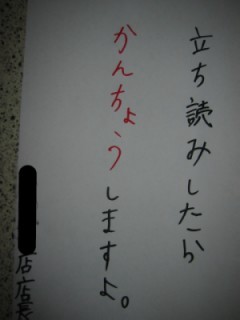 立ち読みしたら
かんちょうしますよ。
店店長